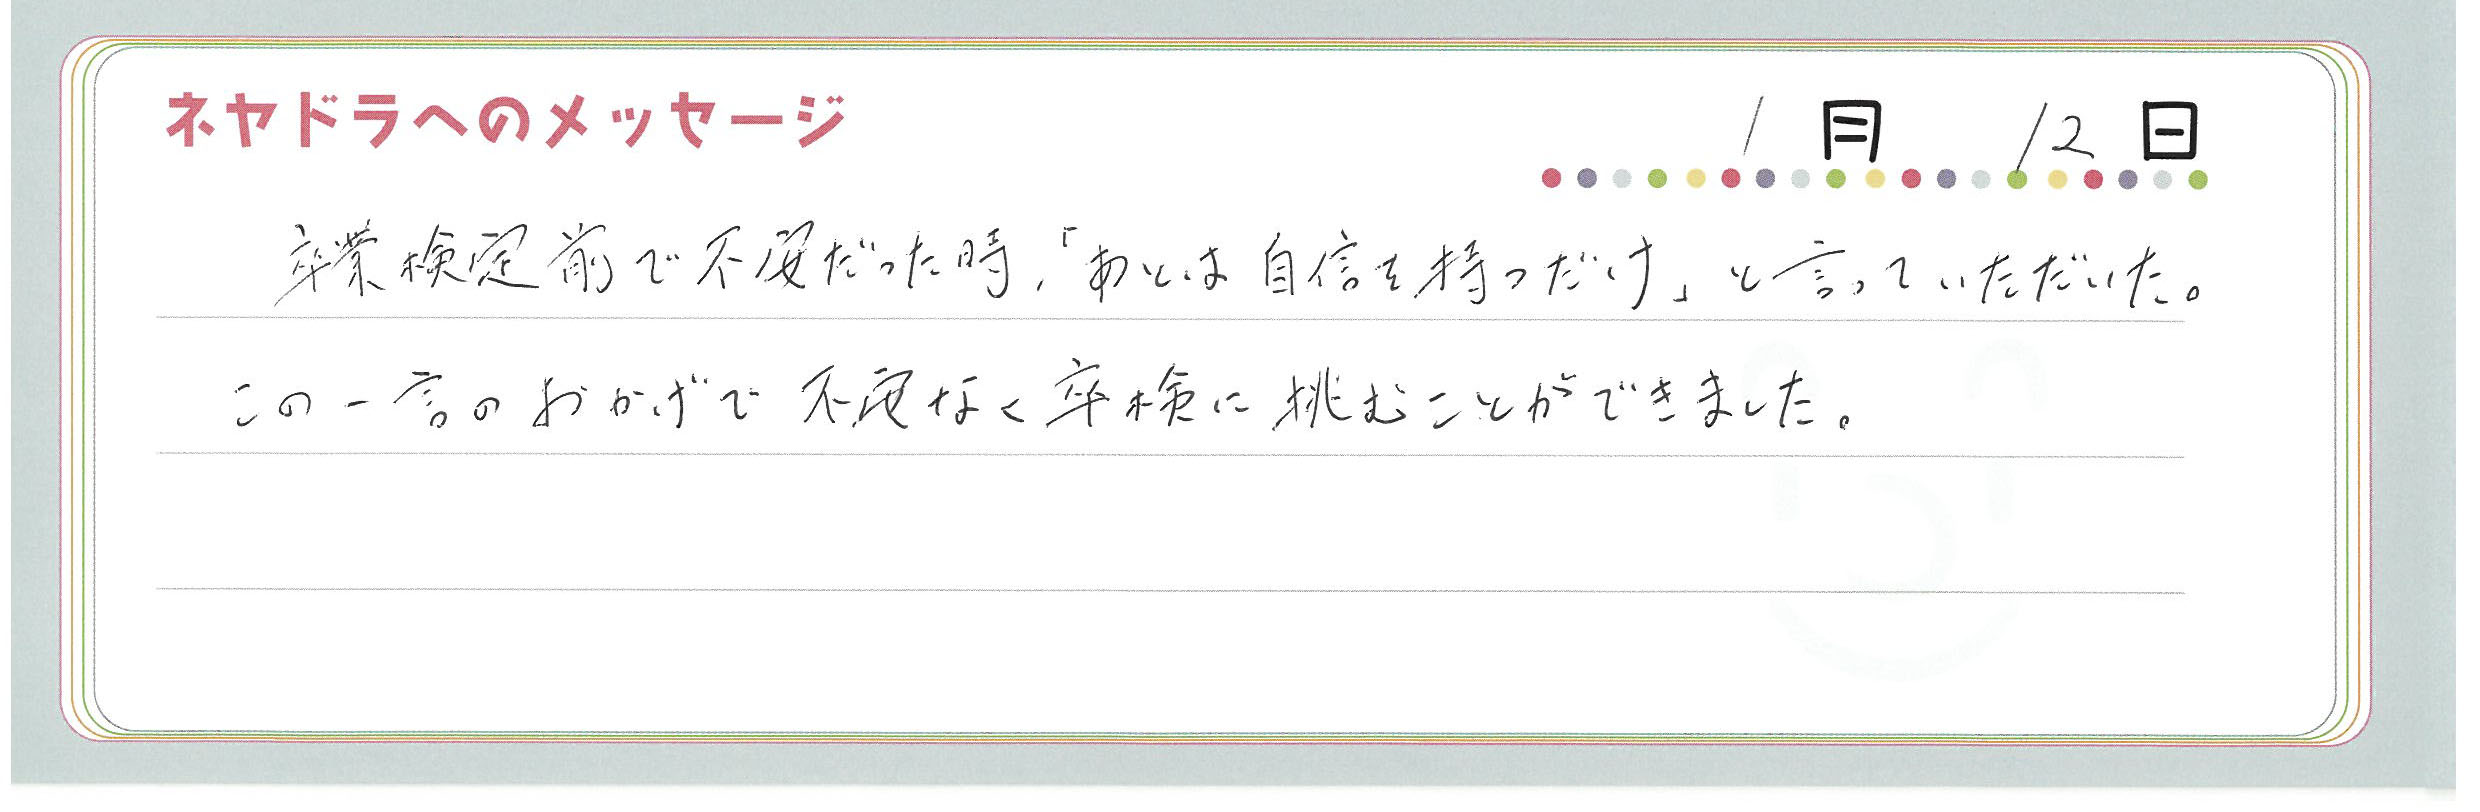 ネヤドラへのメッセージ
1月 12日
卒業検定前で不安だった時、「あとは自信を持つだけ」と言っていただいた。
この一言のおかげで不安なく卒検に挑むことができました。